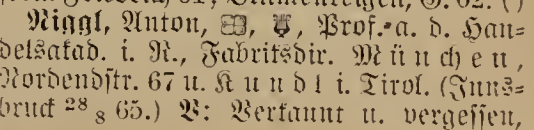 Niggl, Anton, Prof. a. d. Han=
delsakad. i. R., Fabriksdir. München,
Nordendstr. 67 u. Kundl i. Tirol. (Inns=
bruck 28 8 65.) V: Verkannt u. vergessen,